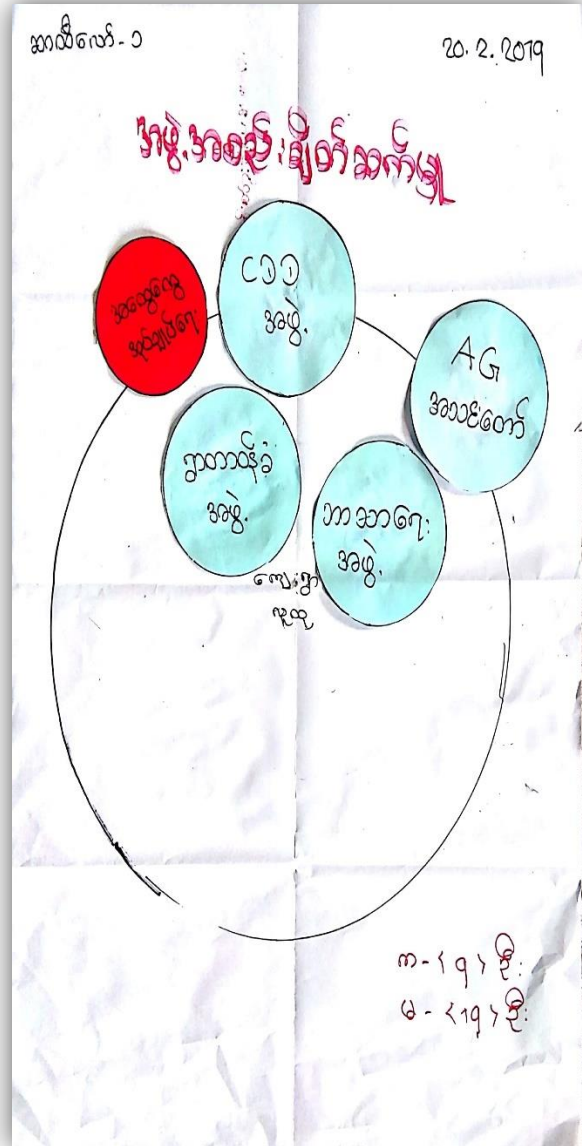 ဆာလီလော် - ၁
20.2.2019
အဖွဲ့အစည်းချိတ်ဆက်မှု
အထွေထွေ
အုပ်ချုပ်ရေး
CDD
အဖွဲ့
AG
အသင်းတော်
ရွာတာဝန်ခံ
အဖွဲ့
ဘာသာရေး
အဖွဲ့
ကျေးရွာ
လူထု
က - < ၅ > ဦး
မ - < ၁၅ > ဦး